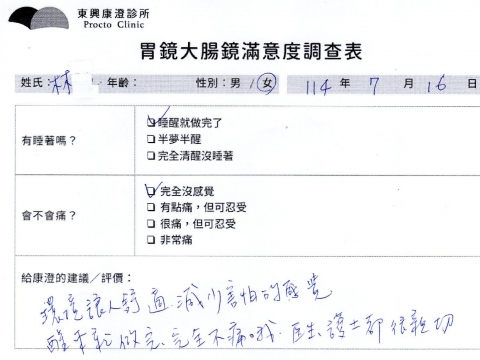 東興康澄診所
Procto Clinic
胃鏡大腸鏡滿意度調查表
姓氏：林 年齡： 性別：男／女 114 年 7 月 16 日
有睡著嗎？
☑睡醒就做完了
❑半夢半醒
❑完全清醒沒睡著
會不會痛？
☑完全沒感覺
❑有點痛，但可忍受
❑很痛，但可忍受
❑非常痛
給康澄的建議／評價：
環境讓人舒適.減少害怕的感覺
醒來就做完.完全不痛哦.醫生、護士都很親切